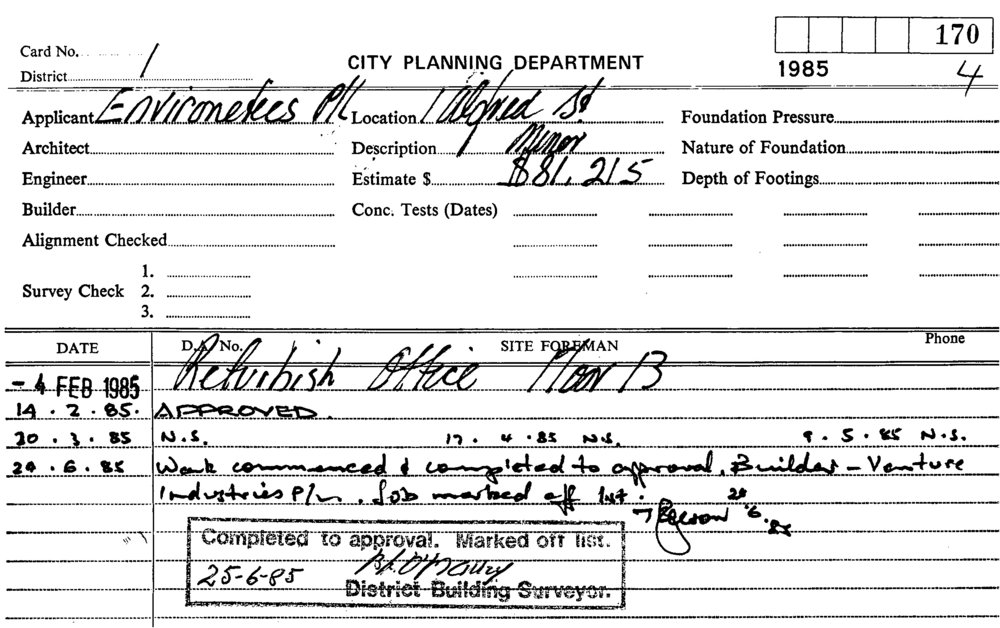 170
Card No. 1
CITY PLANNING DEPARTMENT
1985
4
District
Applicant Environetics P/L Location 1 Alfred St Foundation Pressure
Architect Description Minor Nature of Foundation
Engineer Estimate $ $81,215 Depth of Footings
Builder Conc. Tests (Dates)
Alignment Checked
1.
Survey Check 2.
3.
DATE D.A. No. SITE FOREMAN Phone
- 4 FEB 1985 Refurbish Office Floor 13
14 . 2 . 85. APPROVED.
20 . 3 . 85 N.S. 17 . 4 . 85 N.S. 9 . 5 . 85 N.S.
24 . 6 . 85 Work commenced & completed to approval. Builder - Venture
Industries P/L. Job marked off list.
Completed to approval. Marked off list.
25-6-85
District Building Surveyor.